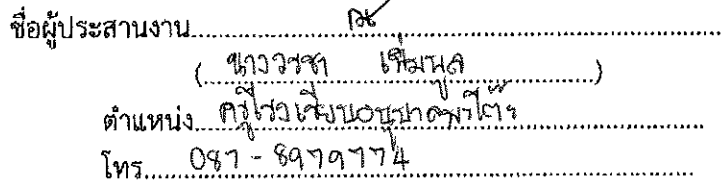 ชื่อผู้ประสานงาน
( นางวรชา เพิ่มพูล )
ตำแหน่ง ครูโรงเรียนอนุบาล
โทร. 087-8979774